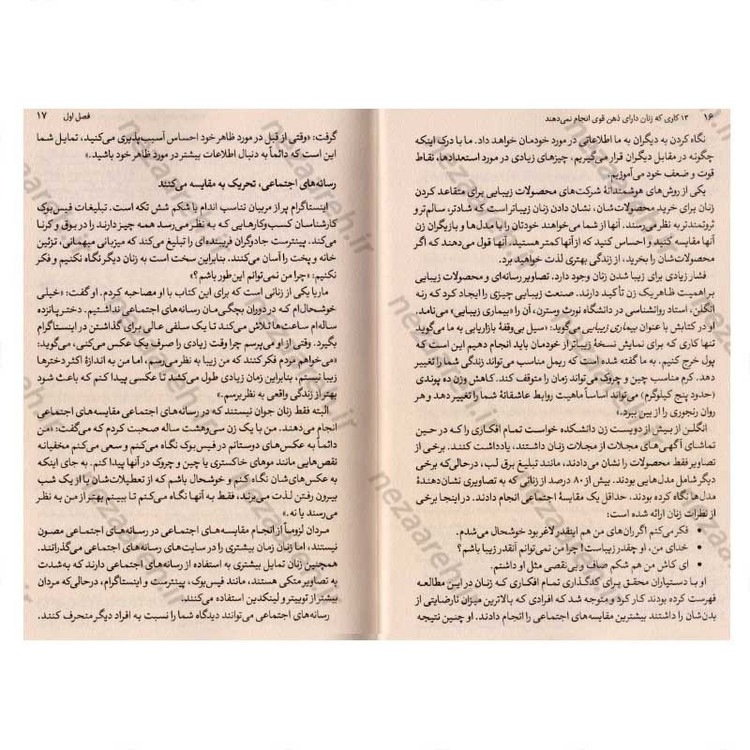 ۱۶ ۱۳ کاری که زنان دارای ذهن قوی انجام نمی‌دهند
نگاه کردن به دیگران به ما اطلاعاتی در مورد خودمان خواهد داد. ما با درک اینکه
چگونه در مقابل دیگران قرار می‌گیریم، چیزهای زیادی در مورد استعدادها، نقاط
قوت و ضعف خود می‌آموزیم.
یکی از روش‌های هوشمندانهٔ شرکت‌های محصولات زیبایی برای متقاعد کردن
زنان برای خرید محصولات‌شان، نشان دادن زنان زیباتر است که شادتر، سالم‌تر و
ثروتمندتر به نظر می‌رسند. آنها از شما می‌خواهند خودتان را با مدل‌ها و بازیگران زن
آنها مقایسه کنید و احساس کنید که از آنها کمتر هستید. آنها قول می‌دهند که اگر
محصولات‌شان را بخرید، از زندگی بهتری لذت خواهید برد.
فشار زیادی برای زیبا شدن زنان وجود دارد. تصاویر رسانه‌ای و محصولات زیبایی
بر اهمیت ظاهر یک زن تأکید دارند. صنعت زیبایی چیزی را ایجاد کرد که رنه
انگلن، استاد روانشناسی در دانشگاه نورث وسترن، آن را «بیماری زیبایی» می‌نامد.
او در کتابش با عنوان بیماری زیبایی می‌گوید: «سیل بی‌وقفهٔ بازاریابی به ما می‌گوید
تنها کاری که برای نمایش نسخهٔ زیباتر از خودمان باید انجام دهیم این است که
پول خرج کنیم. به ما گفته شده است که ریمل مناسب می‌تواند زندگی شما را تغییر
دهد. کرم مناسب چین و چروک می‌تواند زمان را متوقف کند. کاهش وزن ده پوندی
(حدود پنج کیلوگرم) می‌تواند اساساً ماهیت روابط عاشقانهٔ شما را تغییر دهد و هر
روان رنجوری را از بین ببرد.»
انگلن از بیش از دویست زن دانشکده خواست تمام افکاری را که در حین
تماشای آگهی‌های مجلات از مجلات زنان داشتند، یادداشت کنند. برخی از
تصاویر فقط محصولات را نشان می‌دادند، مانند تبلیغ برق لب، درحالی‌که برخی
دیگر شامل مدل‌هایی بودند. بیش از ۸۰ درصد از زنانی که به تصاویری نشان‌دهندهٔ
مدل‌ها نگاه کرده بودند، حداقل یک مقایسهٔ اجتماعی انجام دادند. در اینجا برخی
از نظرات زنان ارائه شده است:
• فکر می‌کنم اگر ران‌های من هم اینقدر لاغر بود خوشحال می‌شدم.
• خدای من، او چقدر زیباست! چرا من نمی‌توانم آنقدر زیبا باشم؟
• ای کاش من هم شکم صاف و بی‌نقصی مثل او داشتم.
او با دستیاران محقق برای کدگذاری تمام افکاری که زنان در این مطالعه
فهرست کرده بودند کار کرد و متوجه شد که افرادی که بالاترین میزان نارضایتی از
بدن‌شان را داشتند بیشترین مقایسه‌های اجتماعی را انجام دادند. او چنین نتیجه
فصل اول ۱۷
گرفت: «وقتی از قبل در مورد ظاهر خود احساس آسیب‌پذیری می‌کنید، تمایل شما
این است که دائماً به دنبال اطلاعات بیشتر در مورد ظاهر خود باشید.»
رسانه‌های اجتماعی، تحریک به مقایسه می‌کنند
اینستاگرام پر از مربیان تناسب اندام با شکم شش تکه است. تبلیغات فیس‌بوک
کارشناسان کسب‌وکارهایی که به نظر می‌رسد همه چیز دارند را در بوق و کرنا
می‌کند. پینترست جادوگران فریبنده‌ای را تبلیغ می‌کند که میزبانی میهمانی، تزئین
خانه و پخت را آسان می‌کنند. بنابراین سخت است به زنان دیگر نگاه نکنیم و فکر
نکنیم: «چرا من نمی‌توانم این‌طور باشم؟»
ماریا یکی از زنانی است که برای این کتاب با او مصاحبه کردم. او گفت: «خیلی
خوشحال‌ام که در دوران بچگی‌مان رسانه‌های اجتماعی نداشتیم. دختر پانزده
ساله‌ام ساعت‌ها تلاش می‌کند تا یک سلفی عالی برای گذاشتن در اینستاگرام
بگیرد. وقتی از او می‌پرسم چرا وقت زیادی را صرف یک عکس می‌کنی، می‌گوید:
«می‌خواهم مردم فکر کنند که من زیبا به نظر می‌رسم. اما من به اندازهٔ اکثر دخترها
زیبا نیستم، بنابراین زمان زیادی طول می‌کشد تا عکسی پیدا کنم که باعث شود
بهتر از زندگی واقعی به نظر برسم.»
البته فقط زنان جوان نیستند که در رسانه‌های اجتماعی مقایسه‌های اجتماعی
انجام می‌دهند. من با یک زن سی‌وهشت ساله صحبت کردم که می‌گفت: «من
دائماً به عکس‌های دوستانم در فیس‌بوک نگاه می‌کنم و سعی می‌کنم مخفیانه
نقص‌هایی مانند موهای خاکستری یا چین و چروک در آنها پیدا کنم. به جای اینکه
به عکس‌های‌شان نگاه کنم و خوشحال باشم که از تعطیلات‌شان یا از یک شب
بیرون رفتن لذت می‌برند، فقط به آنها نگاه می‌کنم تا ببینم بهتر از من به نظر
می‌رسند یا نه.»
مردان لزوماً از انجام مقایسه‌های اجتماعی در رسانه‌های اجتماعی مصون
نیستند، اما زنان زمان بیشتری را در سایت‌های رسانه‌های اجتماعی می‌گذرانند.
همچنین زنان تمایل بیشتری به استفاده از رسانه‌های اجتماعی دارند که به‌شدت
به تصاویر متکی هستند، مانند فیس‌بوک، پینترست و اینستاگرام، درحالی‌که مردان
بیشتر از توییتر و لینکدین استفاده می‌کنند.
رسانه‌های اجتماعی می‌توانند دیدگاه شما را نسبت به افراد دیگر متحرف کنند.
nezaareh.ir